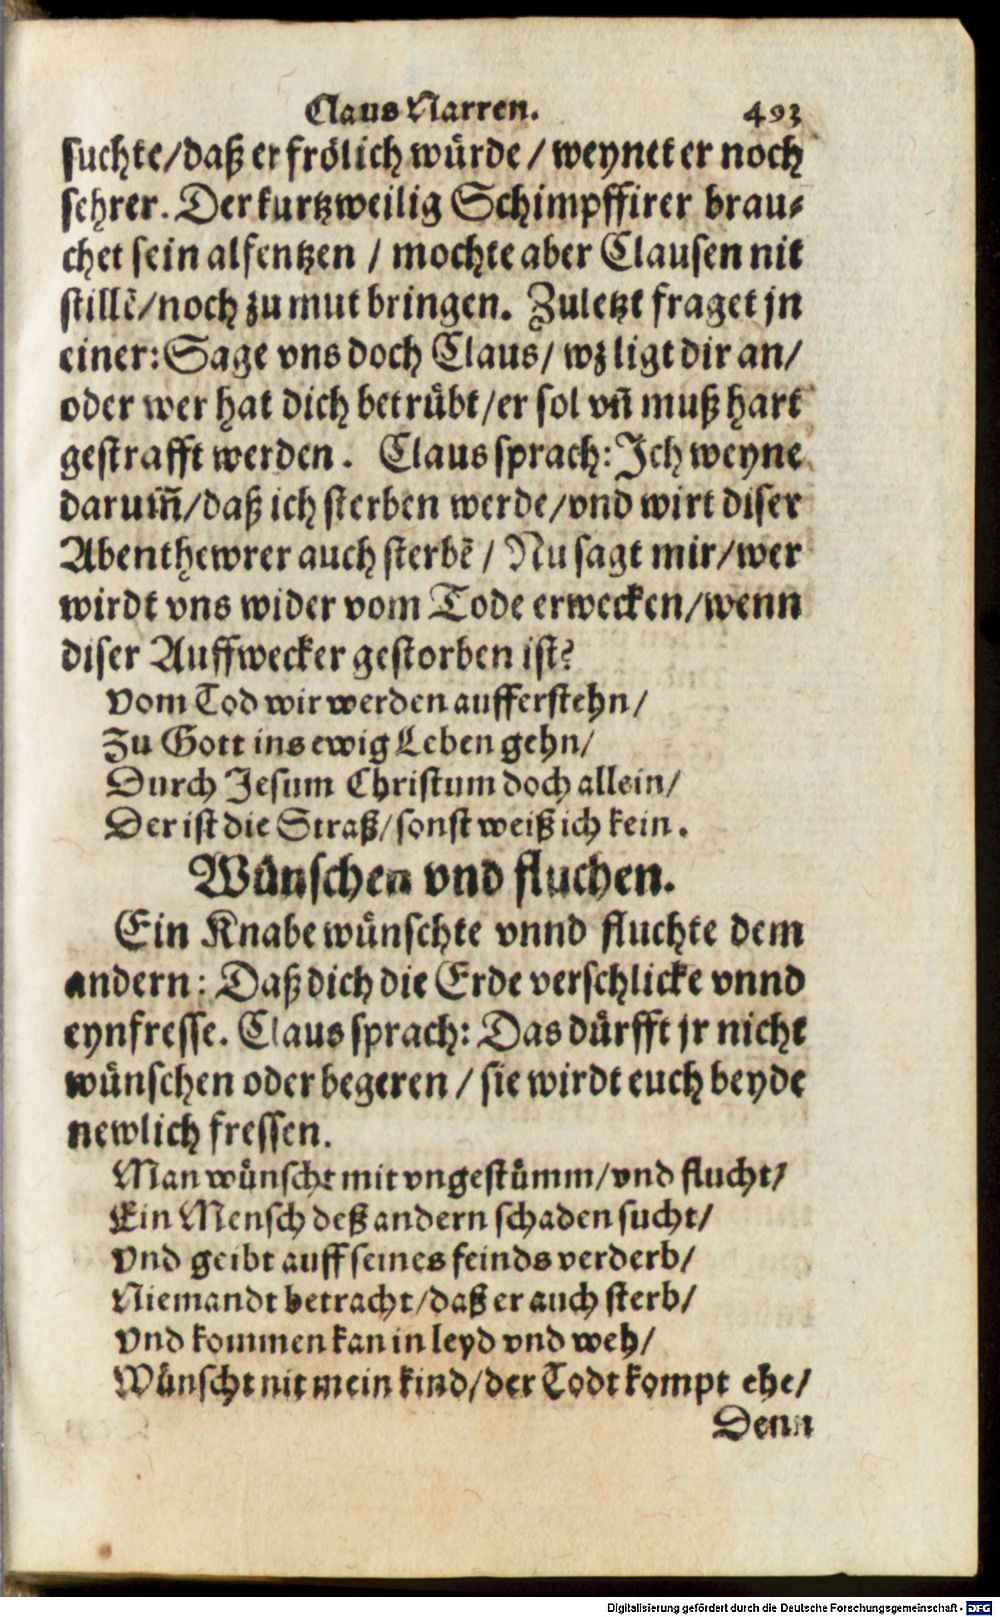 Claus Narren. 493
suchte/daß er frölich würde / weynet er noch
sehrer. Der kurtzweilig Schimpffirer brau⸗
chet sein alfentzen / mochte aber Clausen nit
stillẽ/noch zu mut bringen. Zuletzt fraget jn
einer: Sage vns doch Claus/ wz ligt dir an/
oder wer hat dich betrübt/er sol vñ muß hart
gestrafft werden. Claus sprach: Ich weyne
darum̃/daß ich sterben werde/vnd wirt diser
Abenthewrer auch sterbẽ / Nu sagt mir/wer
wirdt vns wider vom Tode erwecken/wenn
diser Auffwecker gestorben ist?
Vom Tod wir werden aufferstehn/
Zu Gott ins ewig Leben gehn/
Durch Jesum Christum doch allein/
Der ist die Straß/sonst weiß ich kein.
Wünschen vnd fluchen.
Ein Knabe wünschte vnnd fluchte dem
andern: Daß dich die Erde verschlicke vnnd
eynfresse. Claus sprach: Das dürfft jr nicht
wünschen oder begeren / sie wirdt euch beyde
newlich fressen.
Man wünscht mit vngestümm/vnd flucht/
Ein Mensch deß andern schaden sucht/
Vnd geibt auff seines feinds verderb/
Niemandt betracht/daß er auch sterb/
Vnd kommen kan in leyd vnd weh/
Wünscht nit mein kind/der Todt kompt ehe/
Denn
Digitalisierung gefördert durch die Deutsche Forschungsgemeinschaft - DFG